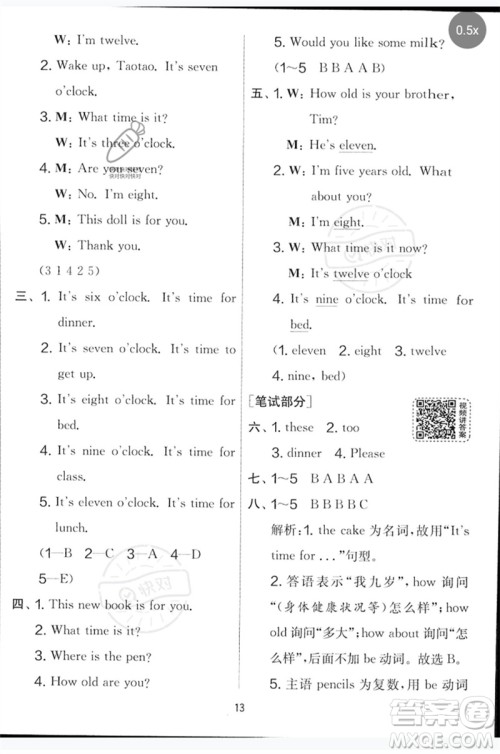 0.5x
W: I'm twelve.
2. Wake up, Taotao. It's seven
o'clock.
3. M: What time is it?
W: It's three o'clock.
4. M: Are you seven?
W: No. I'm eight.
5. M: This doll is for you.
W: Thank you.
(3 1 4 2 5)
三、1. It's six o'clock. It's time for
dinner.
2. It's seven o'clock. It's time to
get up.
3. It's eight o'clock. It's time for
bed.
4. It's nine o'clock. It's time for
class.
5. It's eleven o'clock. It's time for
lunch.
(1—B 2—A 3—C 4—D
5—E)
四、1. This new book is for you.
2. What time is it?
3. Where is the pen?
4. How old are you?
5. Would you like some milk?
(1~5 B B A A B)
五、1. W: How old is your brother,
Tim?
M: He's eleven.
2. W: I'm five years old. What
about you?
M: I'm eight.
3. W: What time is it now?
M: It's twelve o'clock
4. It's nine o'clock. It's time for
bed.
(1. eleven 2. eight 3. twelve
4. nine, bed)
[笔试部分]
六、1. these 2. too
3. dinner 4. Please
视频讲答案
七、1~5 B A B A A
八、1~5 B B B B C
解析:1. the cake 为名词,故用“It's
time for ...”句型。
2. 答语表示“我九岁”,how 询问
“(身体健康状况等)怎么样”,how
old 询问“多大”;how about 询问“怎
么样”,后面没有 be 动词。故选 B。
5. 主语 pencils 为复数,用 be 动词
13
快对快对快对
快对
答案圈
MXQE.COM